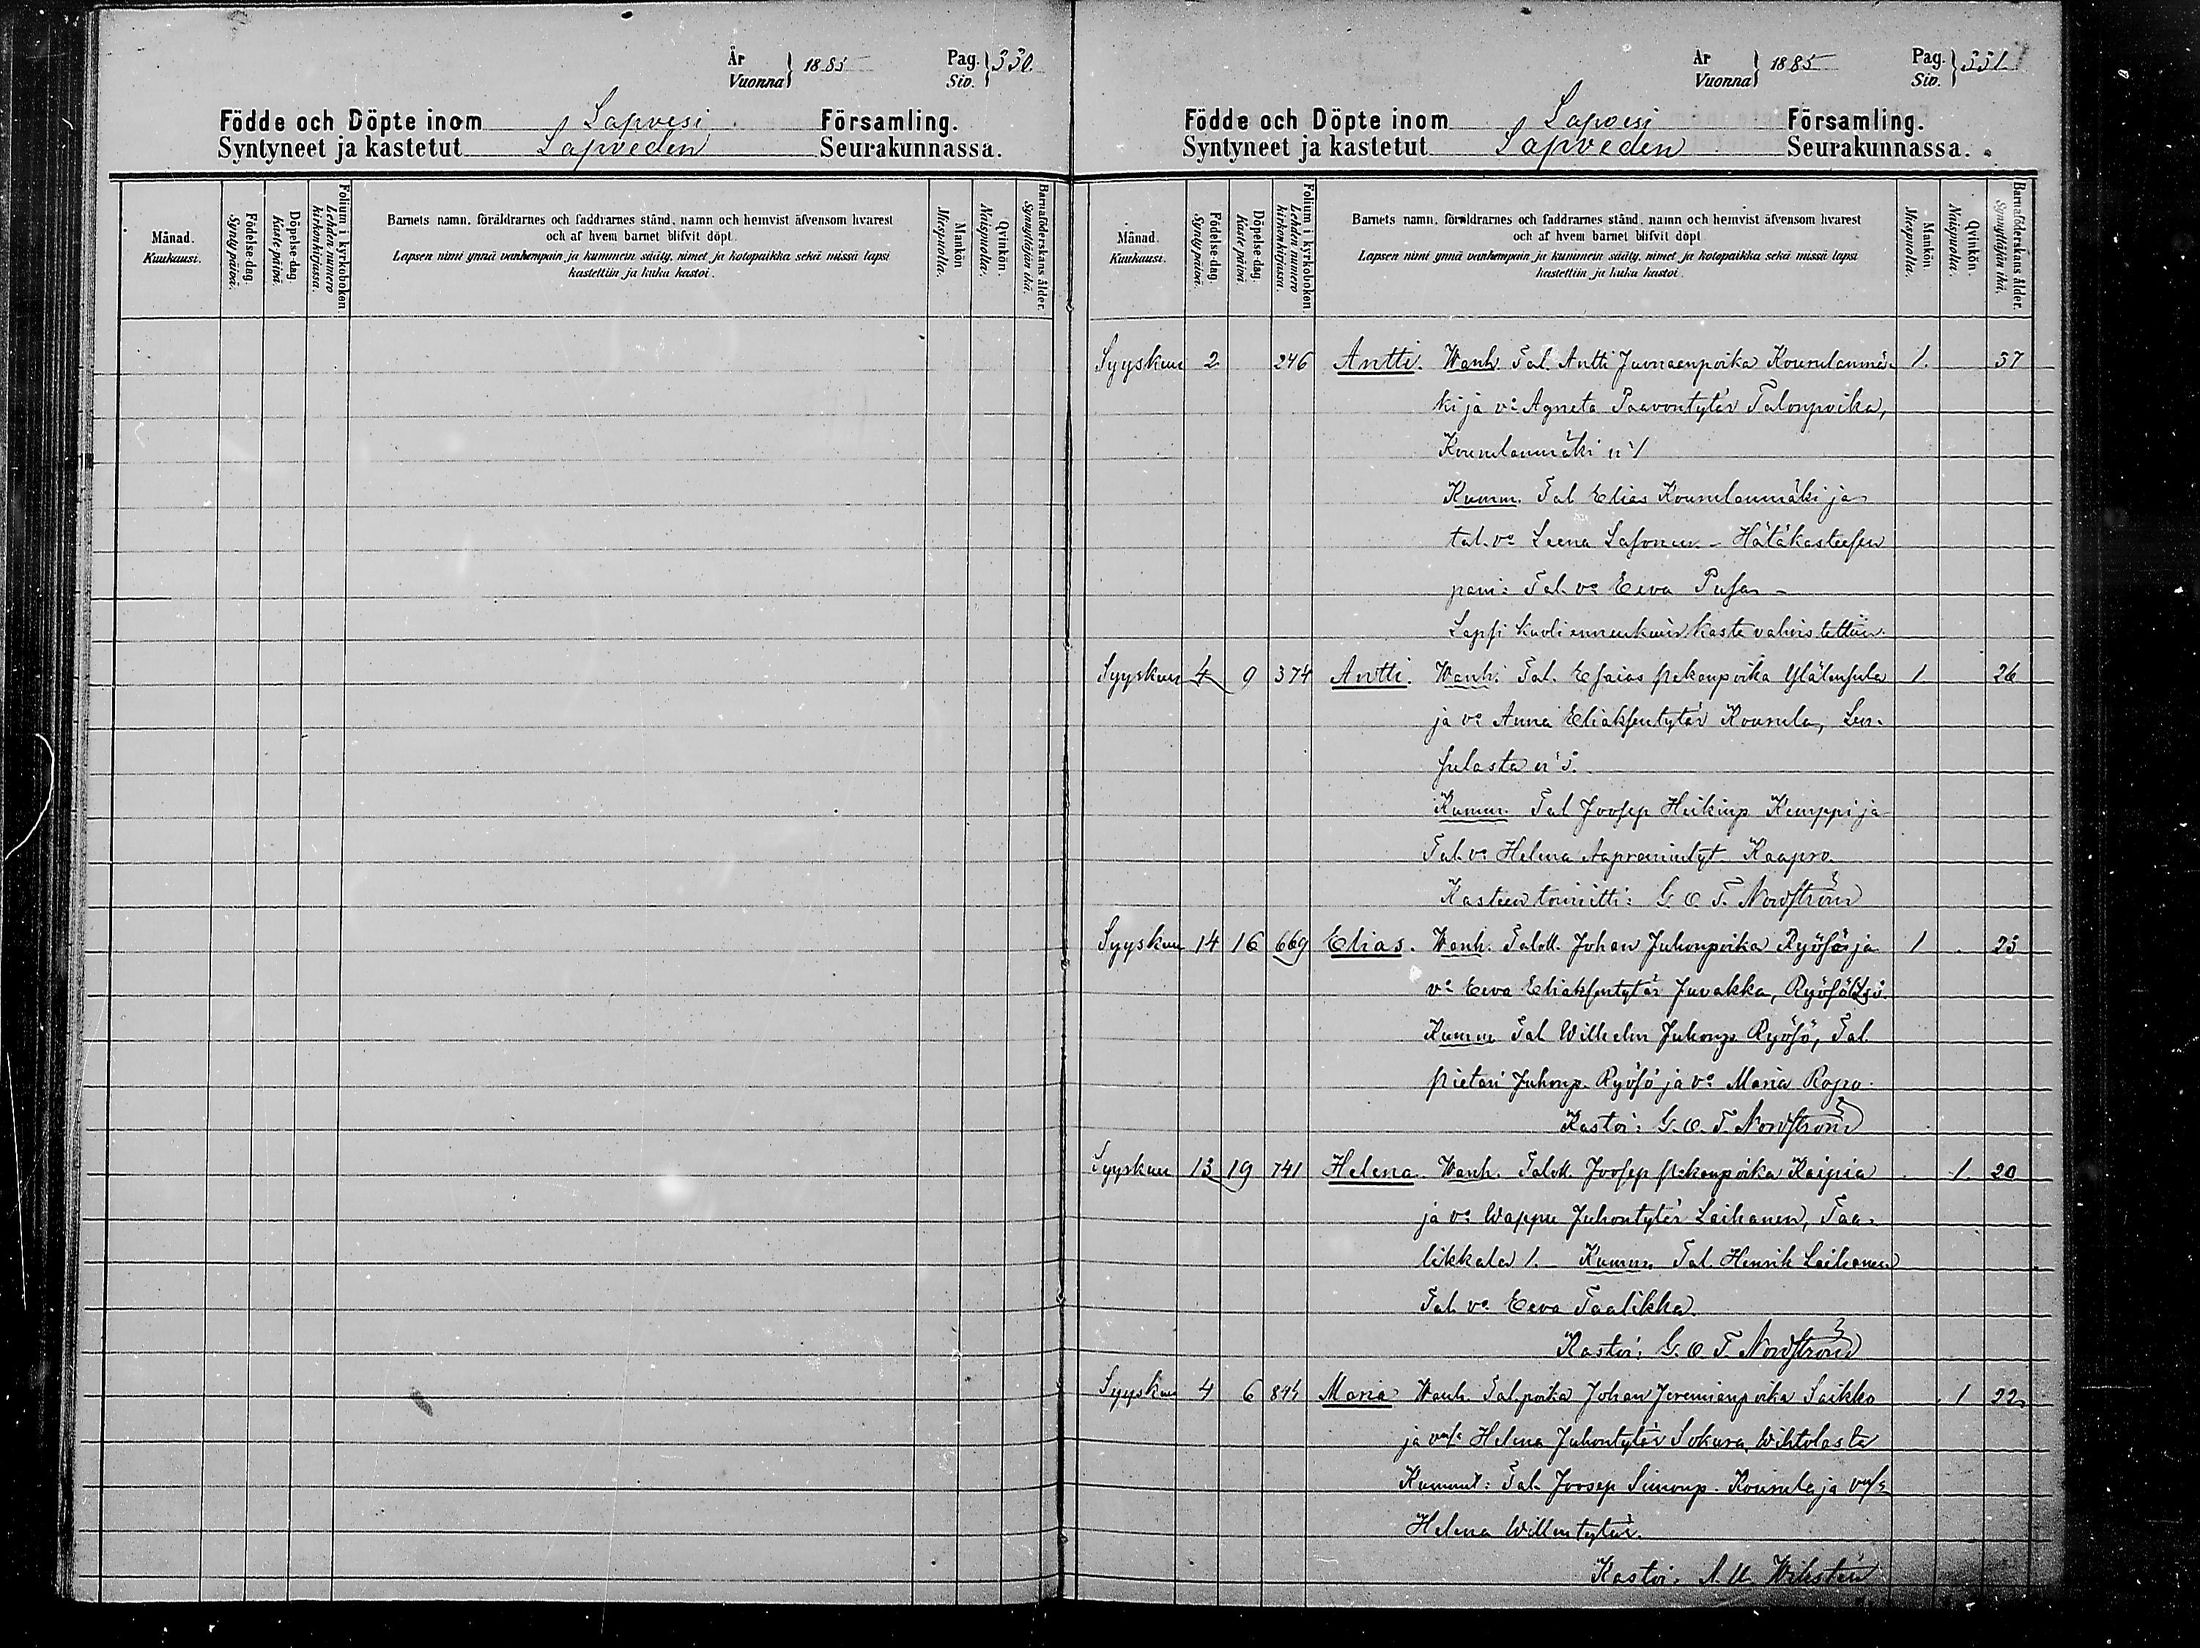 År
Vuonna } 1885 Pag.
Siv. } 330.
Födde och Döpte inom Lapvesi Församling.
Syntyneet ja kastetut Lapveden Seurakunnassa.
Månad.
Kuukausi.
Födelse-dag.
Syntypäivä.
Döpelse-dag.
Kastepäivä
Folium i kyrkoboken.
Lehden numero kirkonkirjassa.
Barnets namn, föräldrarnes och faddrarnes stånd, namn och hemvist äfvensom hvarest
och af hvem barnet blifvit döpt.
Lapsen nimi ynnä vanhempain ja kummein sääty, nimet ja kotopaikka sekä missä lapsi
kastettiin ja kuka kastoi.
Mankön
Miespuolia.
Qvinkön.
Naispuolia.
Barnaföderskans ålder.
Synnyttäjän ikä.
År
Vuonna } 1885 Pag.
Siv. } 331
Födde och Döpte inom Lapvesi Församling.
Syntyneet ja kastetut Lapveden Seurakunnassa.
Månad.
Kuukausi.
Födelse-dag.
Syntypäivä.
Döpelse-dag.
Kastepäivä
Folium i kyrkoboken.
Lehden numero kirkonkirjassa.
Barnets namn, föräldrarnes och faddrarnes stånd, namn och hemvist äfvensom hvarest
och af hvem barnet blifvit döpt
Lapsen nimi ynnä vanhempain ja kummein sääty, nimet ja kotopaikka sekä missä lapsi
kastettiin ja kuka kastoi.
Mankön.
Miespuolia.
Qvinkön.
Naispuolia.
Barnaföderskans ålder.
Synnyttäjän ikä.
Syyskuu 2 246 Antti. Wanh. Tal. Antti Juonaenpoika Kourulanmä- 1. 37
ki ja vo Agneta Paavontytär Talonpoika,
Kourulanmäki n:o 1
Kumm. Tal Elias Kourulanmäki ja
tal. vo Leena Lasonen – Hätäkasteesen
pani: Tal. vo Eeva Pusa –
Lapsi kuoli ennenkuin kaste vahvistettiin.
Syyskuu 4 9 374 Antti. Wanh. Tal. Esaias Pekanpoika Ylälensula 1. 26
ja vo Anna Eliaksentytär Kourula, Len-
sulasta n:o 5.
Kumm. Tal Joosep Heikinp Kemppi ja
Tal. vo Helena Aapramintyt. Kaapro.
Kasteen toimitti: G. O. T. Nordström
Syyskuu 14 16 669 Elias. Wanh. Talok. Johan Juhonpoika Ryösä ja 1 25
vo Eeva Eliaksentytär Juvakka, Ryösö
Kumm Tal Wilhelm Juhonp. Ryösö, Tal
Pietari Juhonp. Ryösö ja vo Maria Ropo.
Kastoi: G. O. T. Nordström
Syyskuu 13 19 741 Helena. Wanh. Talok. Joosep Pekanpoika Kaipia 1. 20
ja vo Wappu Juhontytär Laihanen, Taa-
likkala 1. – Kumm. Tal. Henrik Laihanen
Tal. vo Eeva Taalikka.
Kastoi: G. O. T. Nordström
Syyskuu 4 6 Maria Wanh. Tal.poika Johan Jeremianpoika Saikko 1 22.
ja Helena Juhontytär Sokura, Wihtolasta
Kummit: Tal. Joosep Simonp. Kourula ja
Helena Willentytär.
Kastoi. A. U. Wikstén